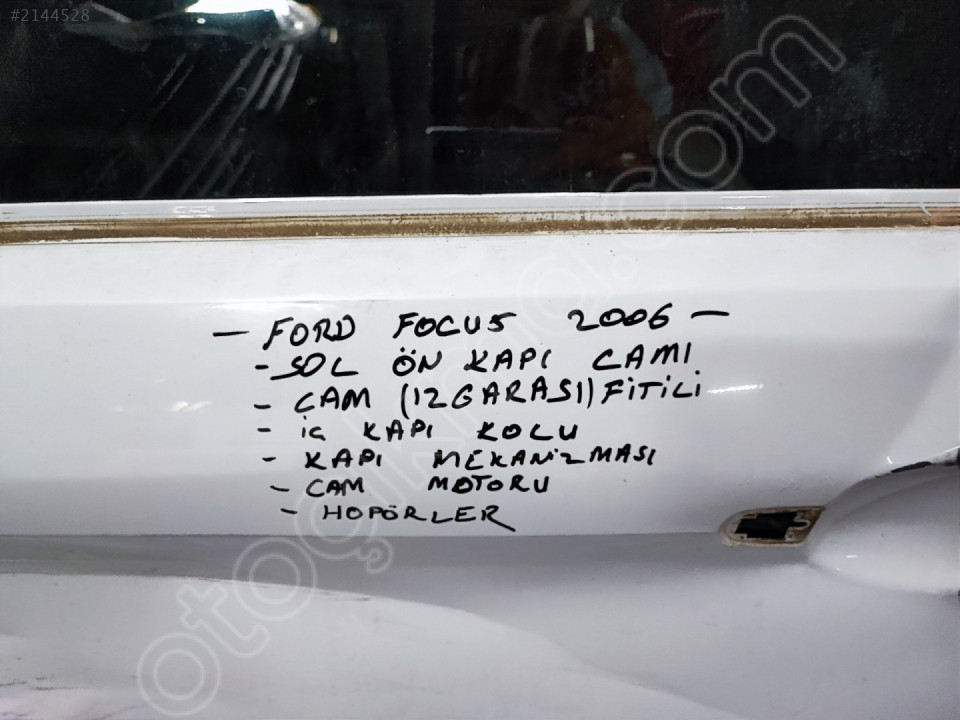 #2144528
— FORD FOCUS 2006 —
- SOL ÖN KAPI CAMI
- CAM (IZGARASI) FİTİLİ
- iç KAPI KOLU
- KAPI MEKANİZMASI
- CAM MOTORU
- HOPÖRLER
otoçıkma.com